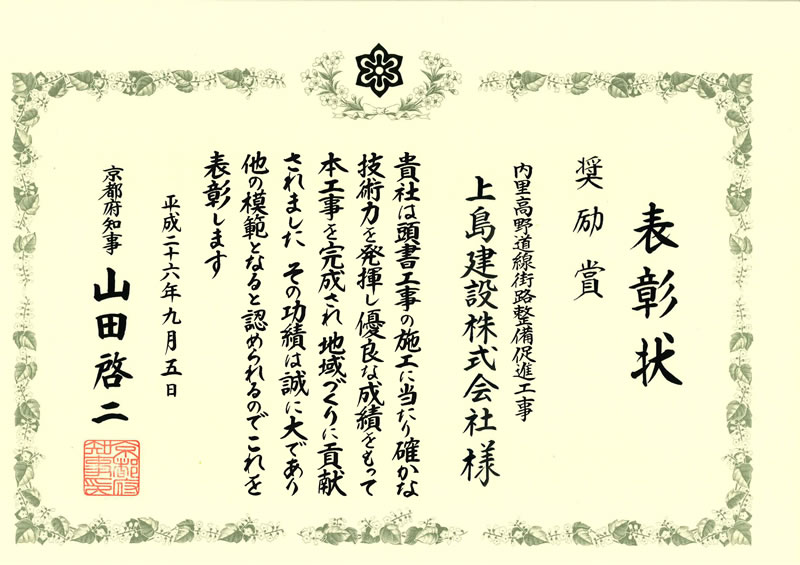 表彰状
奨励賞
内里高野道線街路整備促進工事
上島建設株式会社様
貴社は頭書工事の施工に当たり確かな
技術力を発揮し優良な成績をもって
本工事を完成され 地域づくりに貢献
されました その功績は誠に大であり
他の模範となると認められるので これを
表彰します
平成二十六年九月五日
京都府知事 山田啓二
京都府
知事印